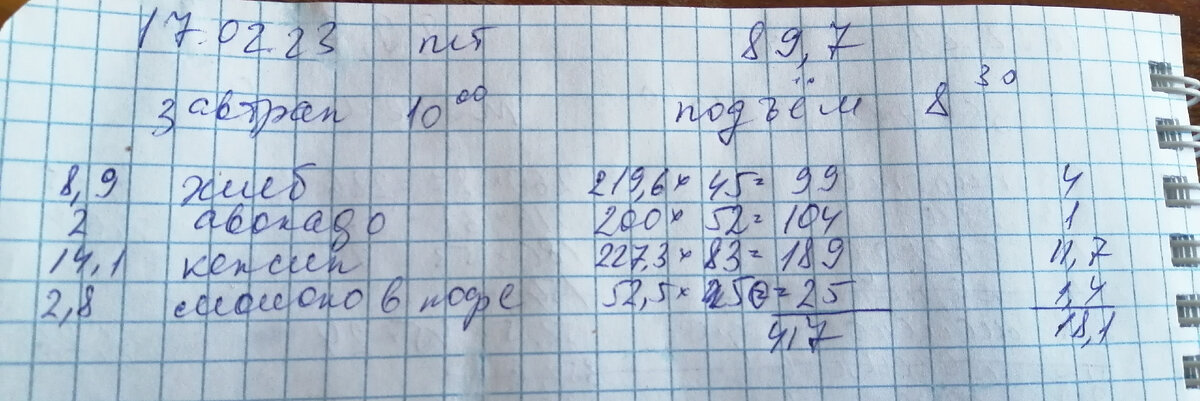 17.02.23 пят 89,7
Завтрак 10⁰⁰ подъём 8³⁰
8,9 хлеб 219,6 × 45 = 99 4
2 авокадо 200 × 52 = 104 1
14,1 кексик 227,3 × 83 = 189 11,7
2,8 молоко в кофе 52,5 × = 25 1,4
417 18,1